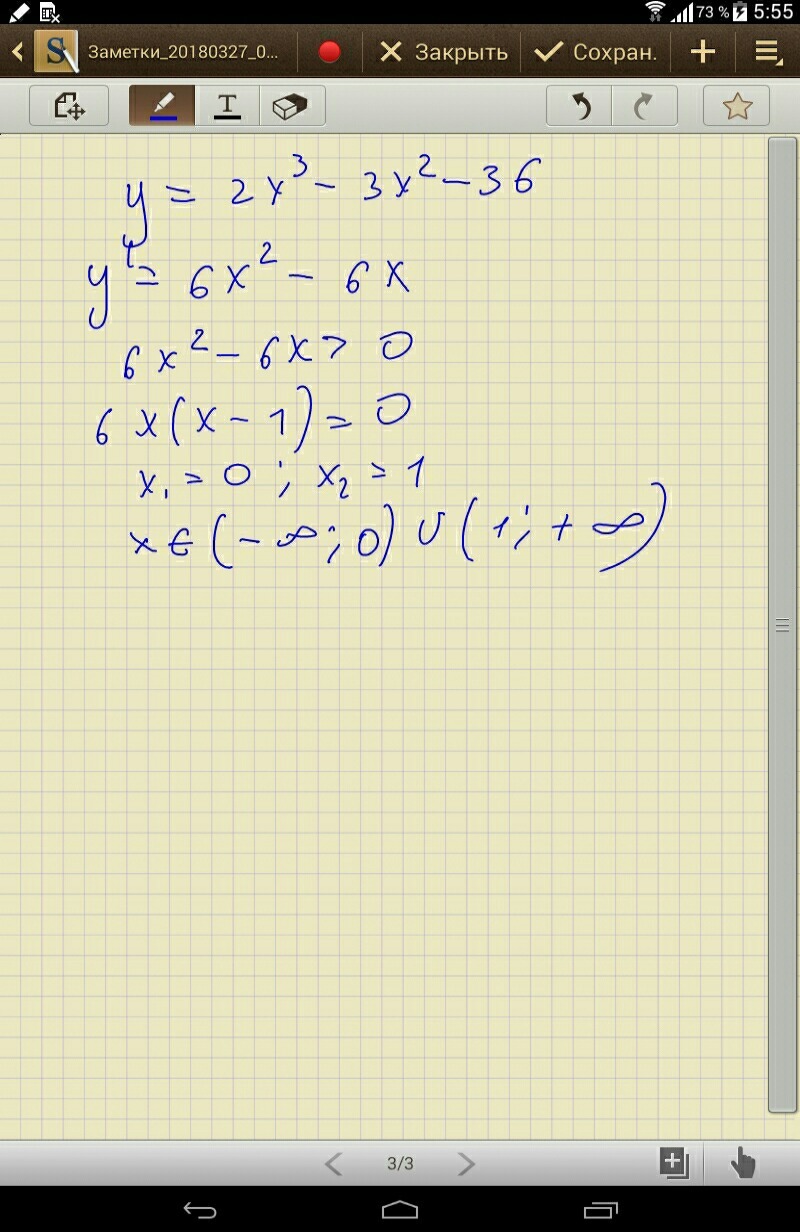 73 % 5:55
Заметки_20180327_0... Закрыть Сохран.
T
y = 2x³ - 3x² - 36
y' = 6x² - 6x
6x² - 6x > 0
6x(x - 1) = 0
x₁ = 0 ; x₂ = 1
x ∈ (-∞; 0) ∪ (1; +∞)
3/3